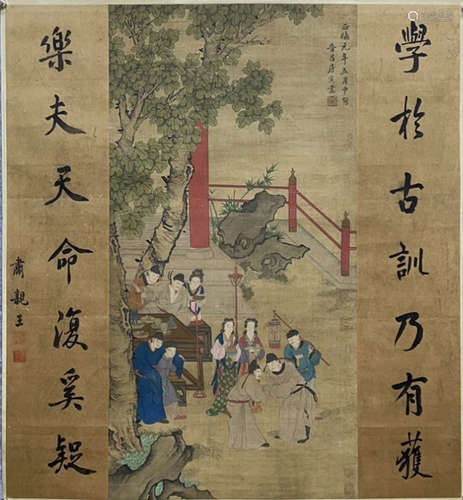 學於古訓乃有獲
正德元年五月中旬
晉昌唐寅畫
樂夫天命復奚疑
肅親王